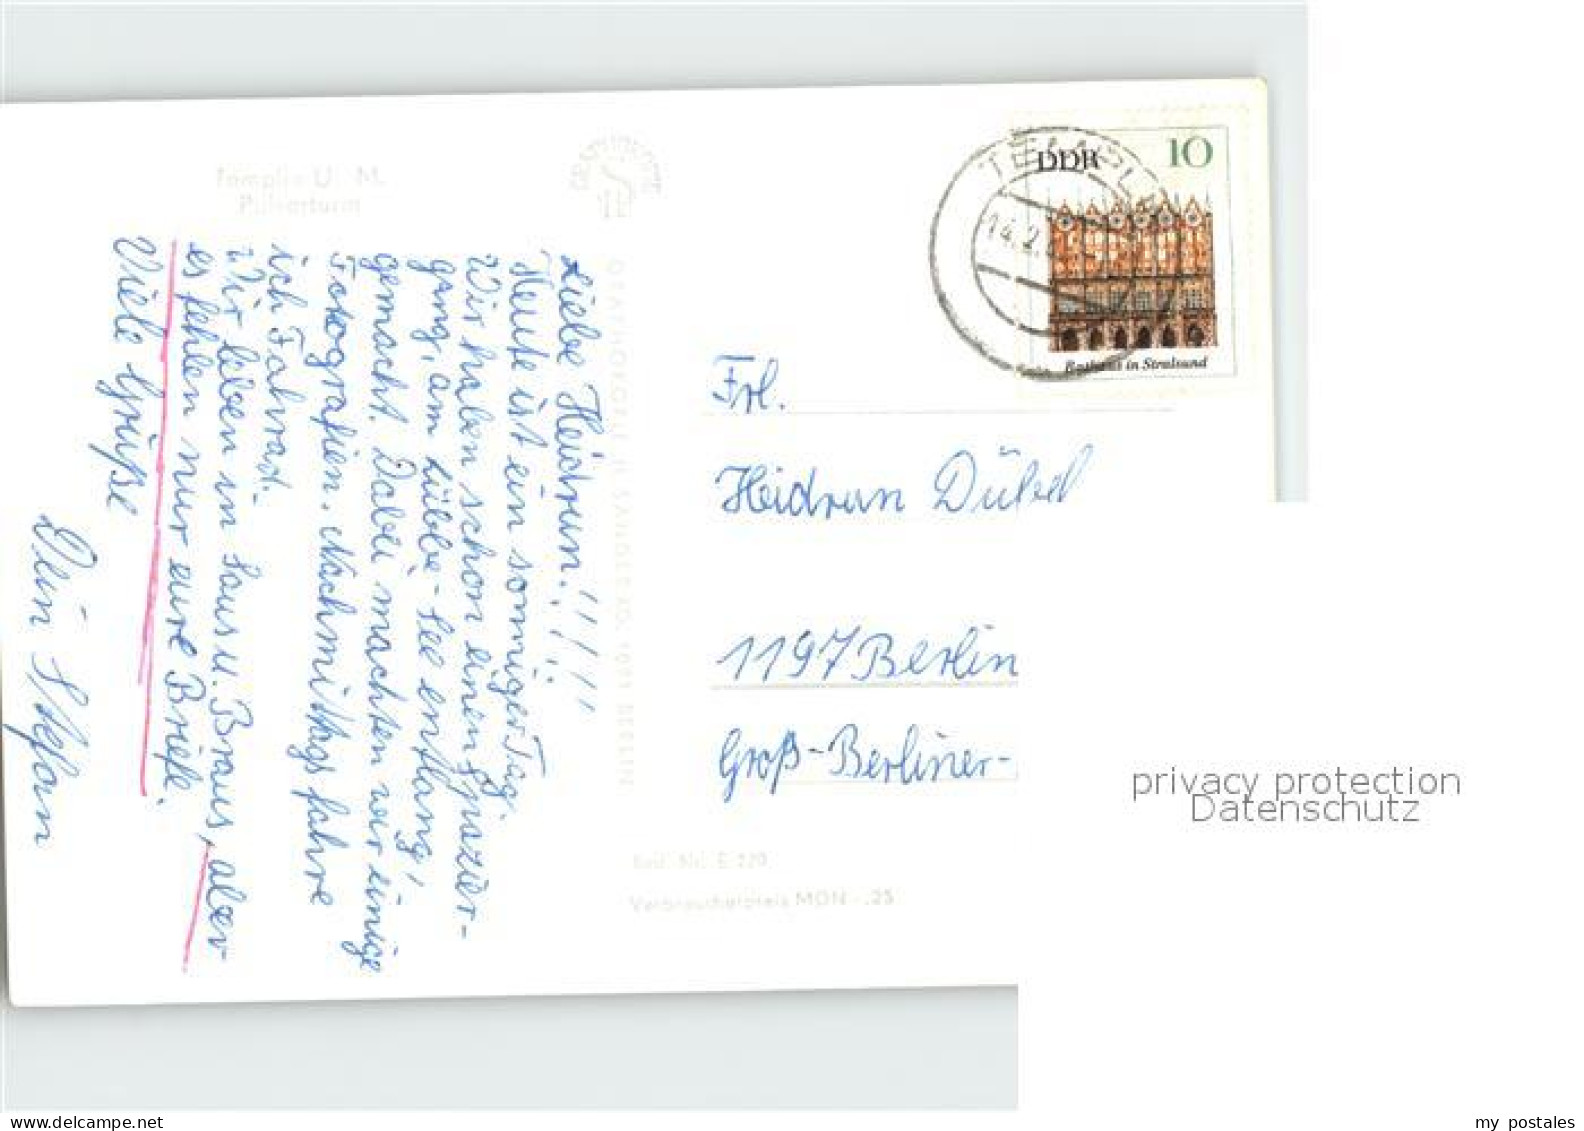 Templin U. M.
Pulverturm
Liebe Heidrun!!!!!
Heute ist ein sonniger Tag.
Wir haben schon einen Spazier-
gang, am Lübbe-See entlang,
gemacht. Dabei machten wir einige
Fotografien. Nachmittags fahre
ich Fahrrad.
Wir leben in Saus u. Braus, aber
es fehlen nur eure Briefe.
Viele Grüße
Dein Stefan
DDR 10
Rathaus in Stralsund
TEMPLIN
14.2.
Frl.
Heidrun
1197 Berlin
Groß-Berliner-
Best. Nr. E 220
Verbraucherpreis MDN -,25
privacy protection
Datenschutz
my postales